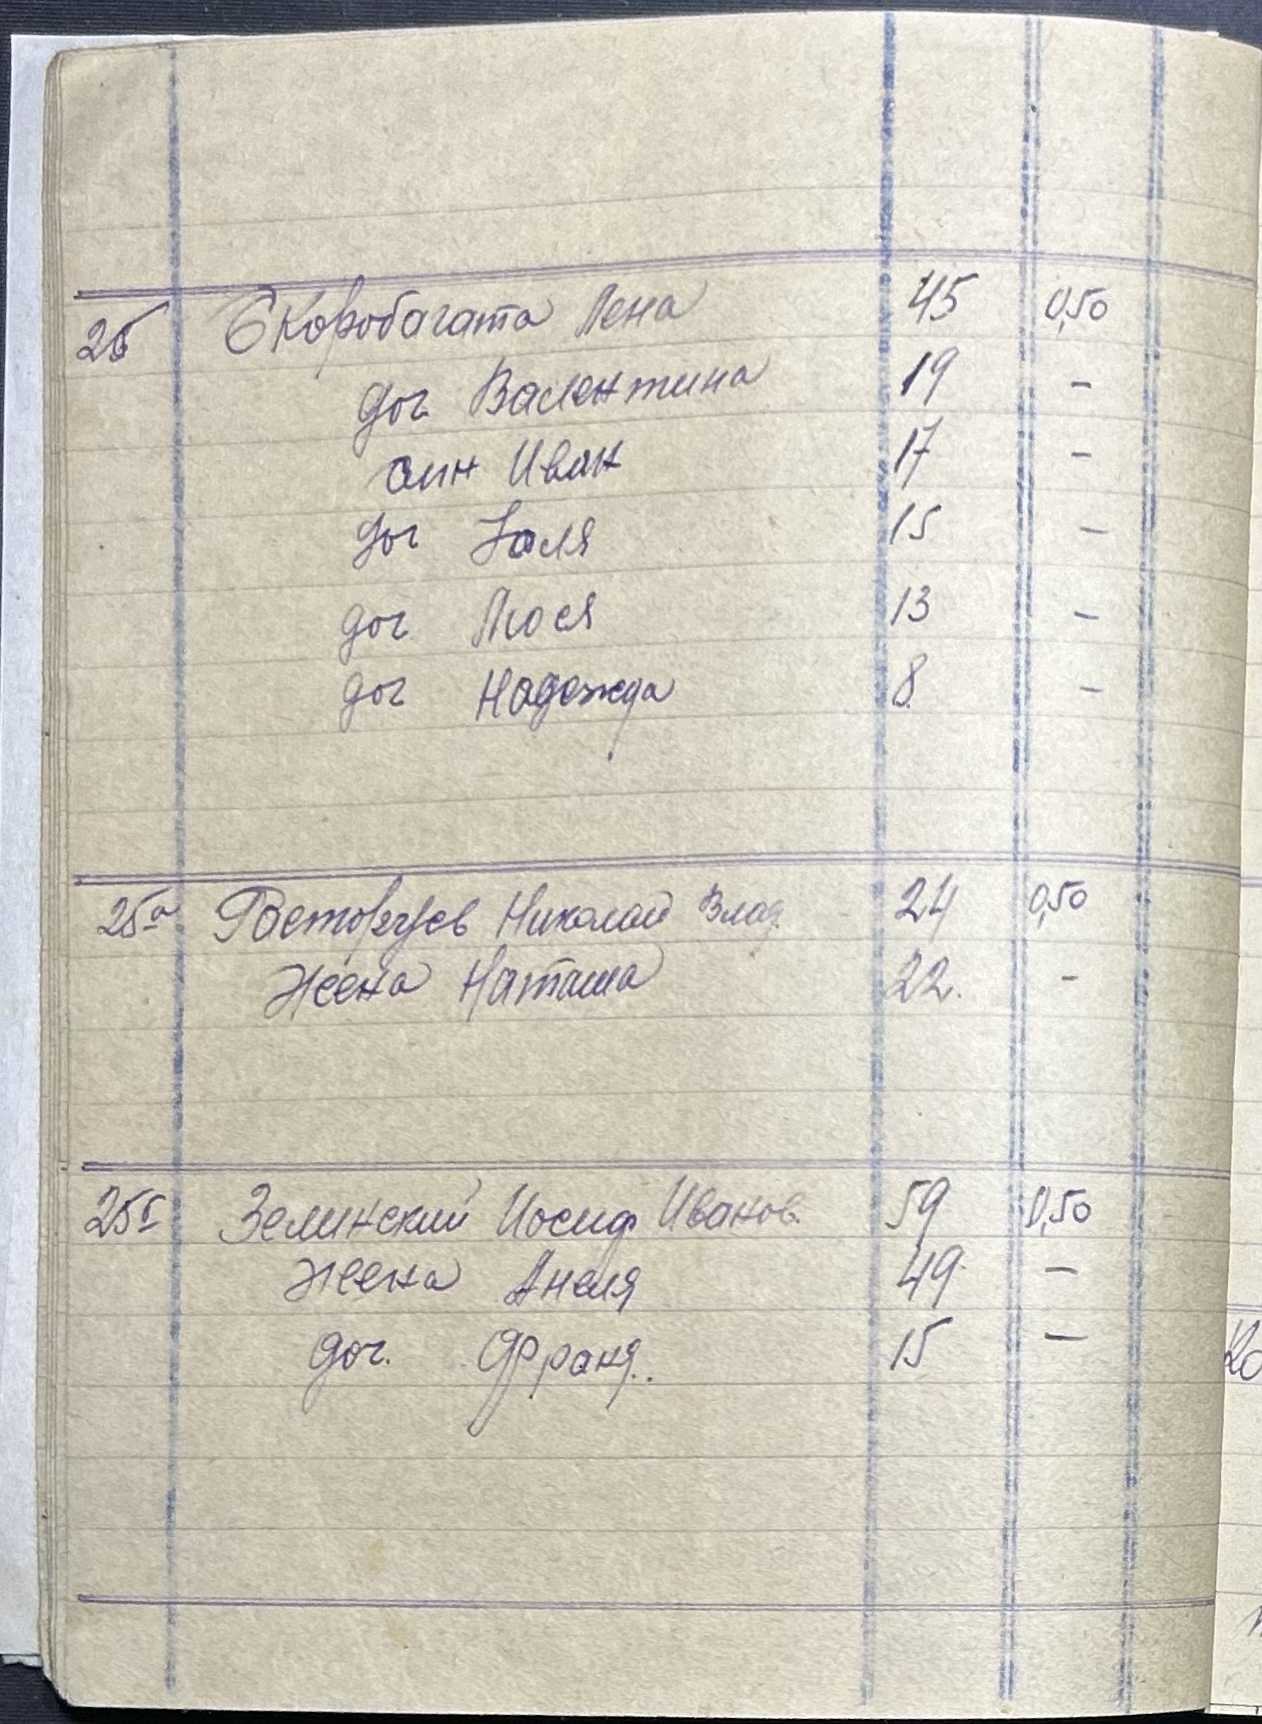 25 Скоробагата Лена 45 0,50
доч. Валентина 19 -
син Иван 17 -
доч Юля 15 -
доч Люся 13 -
доч Надежда 8 -
25а Расторгуев Николай Влад. 24 0,50
Жена Наташа 22. -
25 Зелинский Иосиф Иванов. 59 0,50
Жена Анеля 49 -
доч. Франя.. 15 -